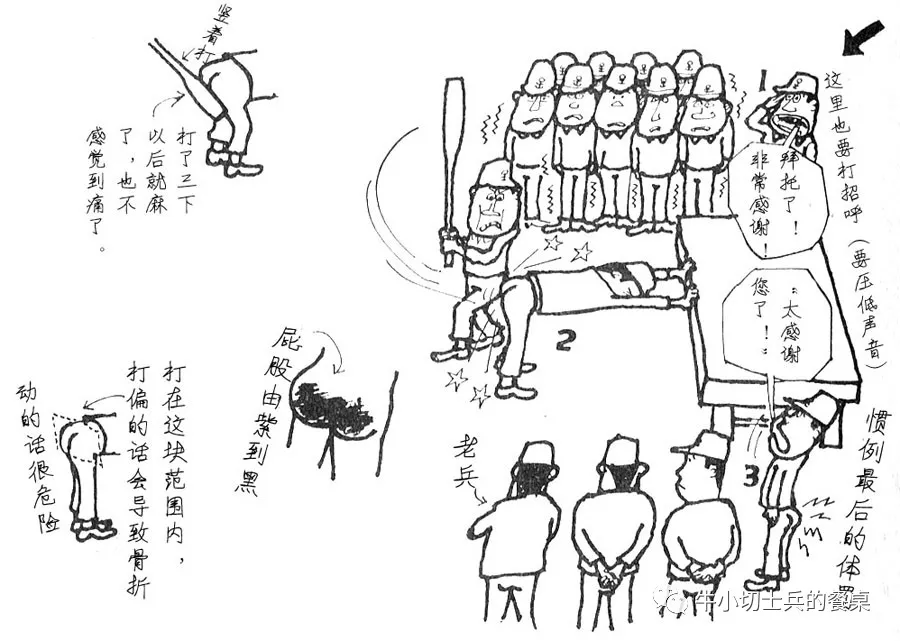 竖着打
打了三下
以后就麻
了，也不
感觉到痛了。
1
这里也要打招呼（要压低声音）
拜托了！
非常感谢！
2
“太感谢
您了！”
3
惯例最后的体罚
老兵
屁股由紫到黑
打在这块范围内，
打偏的话会导致骨折
动的话很危险
牛小切士兵的餐桌